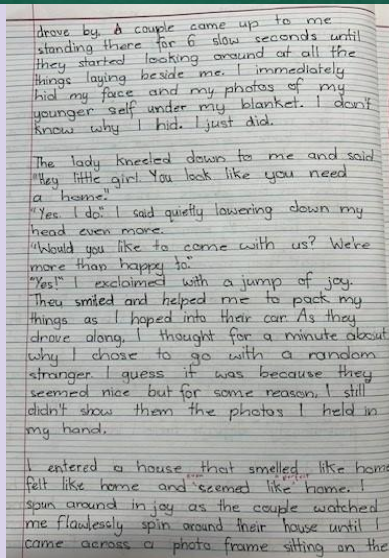 drove by. A couple came up to me
standing there for 6 slow seconds until
they started looking around at all the
things laying beside me. I immediately
hid my face and my photos of my
younger self under my blanket. I don't
know why I hid. I just did.
The lady kneeled down to me and said
"Hey little girl. You look like you need
a home."
"Yes. I do." I said quietly lowering down my
head even more.
"Would you like to come with us? We're
more than happy to."
"Yes!" I exclaimed with a jump of joy.
They smiled and helped me to pack my
things as I hoped into their car. As they
drove along, I thought for a minute about
why I chose to go with a random
stranger. I guess it was because they
seemed nice but for some reason, I still
didn't show them the photos I held in
my hand.
I entered a house that smelled like home
felt like home and seemed like home. I
spun around in joy as the couple watched
me flawlessly spin around their house until I
came across a photo frame sitting on the